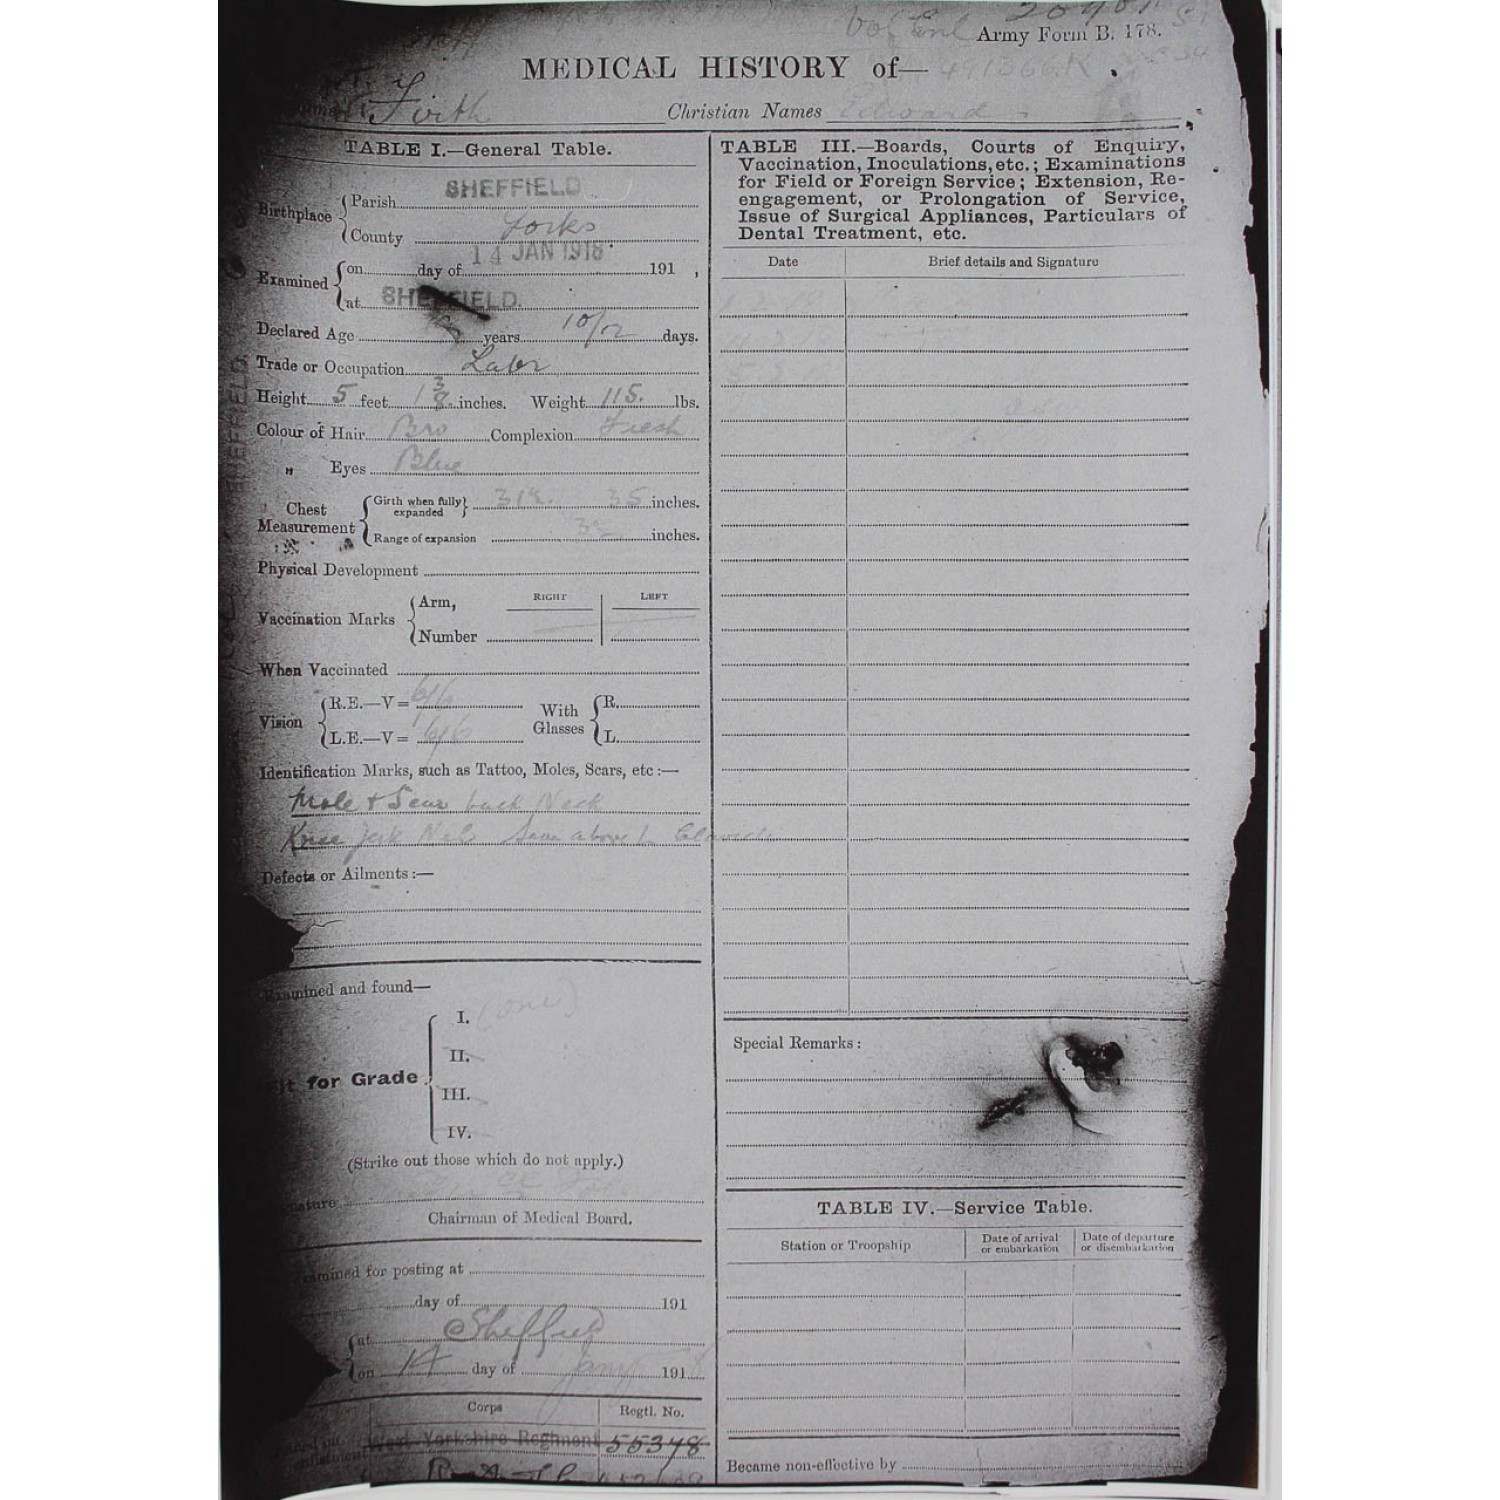 Army Form B. 178.
MEDICAL HISTORY of—
Firth Christian Names Edward
TABLE I.—General Table.
Birthplace Parish SHEFFIELD
County Yorks
14 JAN 1918
Examined on day of 191 ,
at SHEFFIELD.
Declared Age years 10/12 days.
Trade or Occupation Labr
Height 5 feet 1 3/8 inches. Weight 115. lbs.
Colour of Hair Bro Complexion Fresh
" Eyes Blue
Chest Measurement Girth when fully expanded 35 inches.
Range of expansion inches.
Physical Development
RIGHT LEFT
Vaccination Marks Arm,
Number
When Vaccinated
Vision R.E.—V= 6/6 With Glasses R.
L.E.—V= 6/6 L.
Identification Marks, such as Tattoo, Moles, Scars, etc :—
Mole & Scar back Neck
Knee Jerk above L
Defects or Ailments :—
Examined and found—
I. (one)
II.
Fit for Grade
III.
IV.
(Strike out those which do not apply.)
Signature
Chairman of Medical Board.
Examined for posting at
day of 191
at Sheffield
on 14 day of Jany 191
Corps Regtl. No.
West Yorkshire Regiment 55378
TABLE III.—Boards, Courts of Enquiry,
Vaccination, Inoculations, etc.; Examinations
for Field or Foreign Service; Extension, Re-
engagement, or Prolongation of Service,
Issue of Surgical Appliances, Particulars of
Dental Treatment, etc.
Date Brief details and Signature
Special Remarks :
TABLE IV.—Service Table.
Station or Troopship Date of arrival or embarkation Date of departure or disembarkation
Became non-effective by